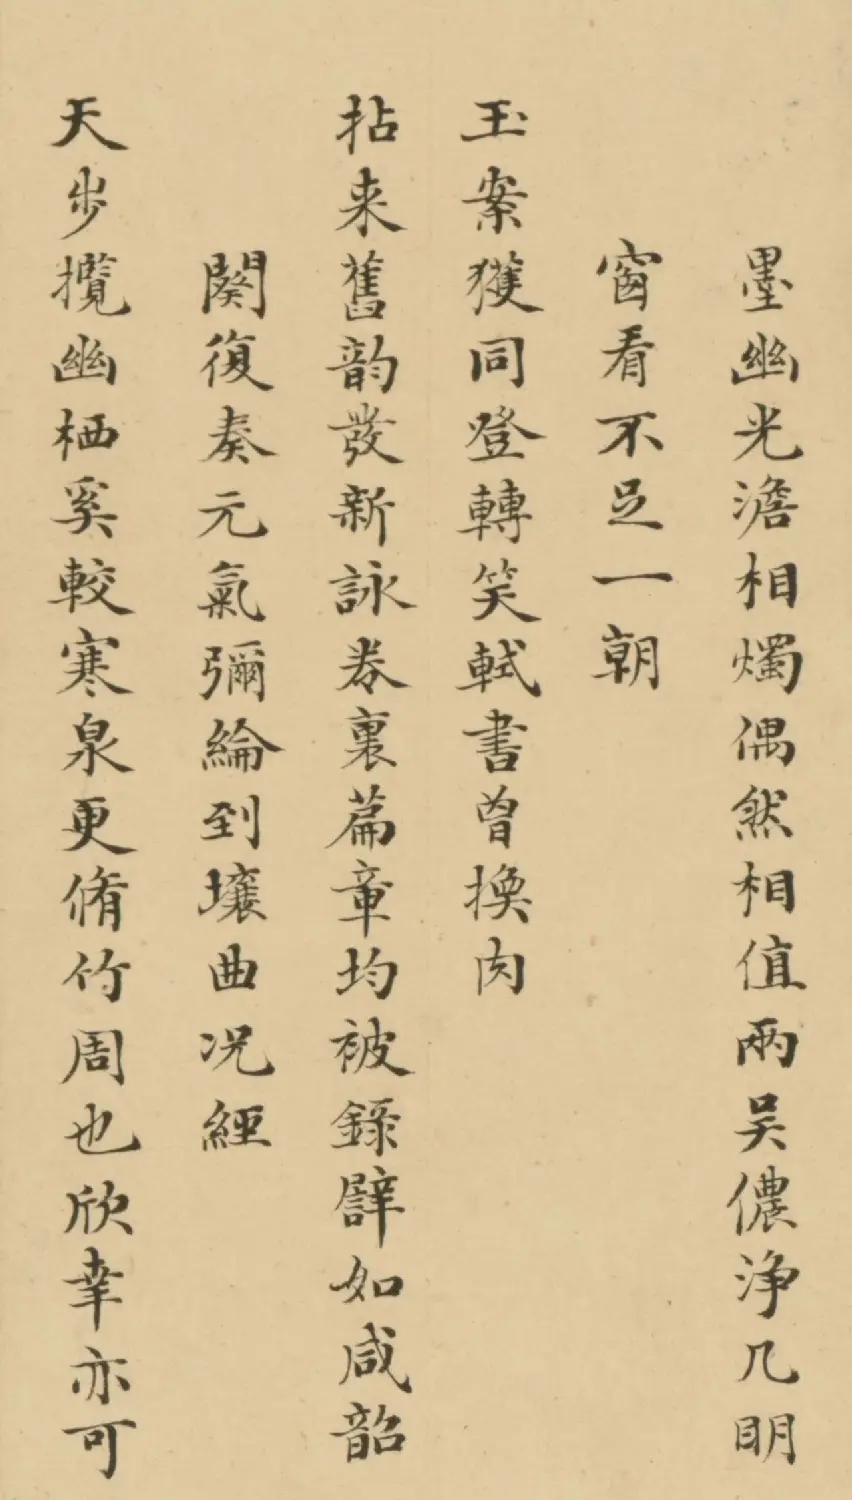 墨幽光澹相燭偶然相值兩吴儂浄几明
窗看不足一朝
玉案獲同登轉笑軾書曾換肉
拈来舊韵發新詠卷裏篇章均被錄譬如咸韶
闋復奏元氣彌綸到壤曲况經
天步攬幽栖奚較寒泉更脩竹周也欣幸亦可